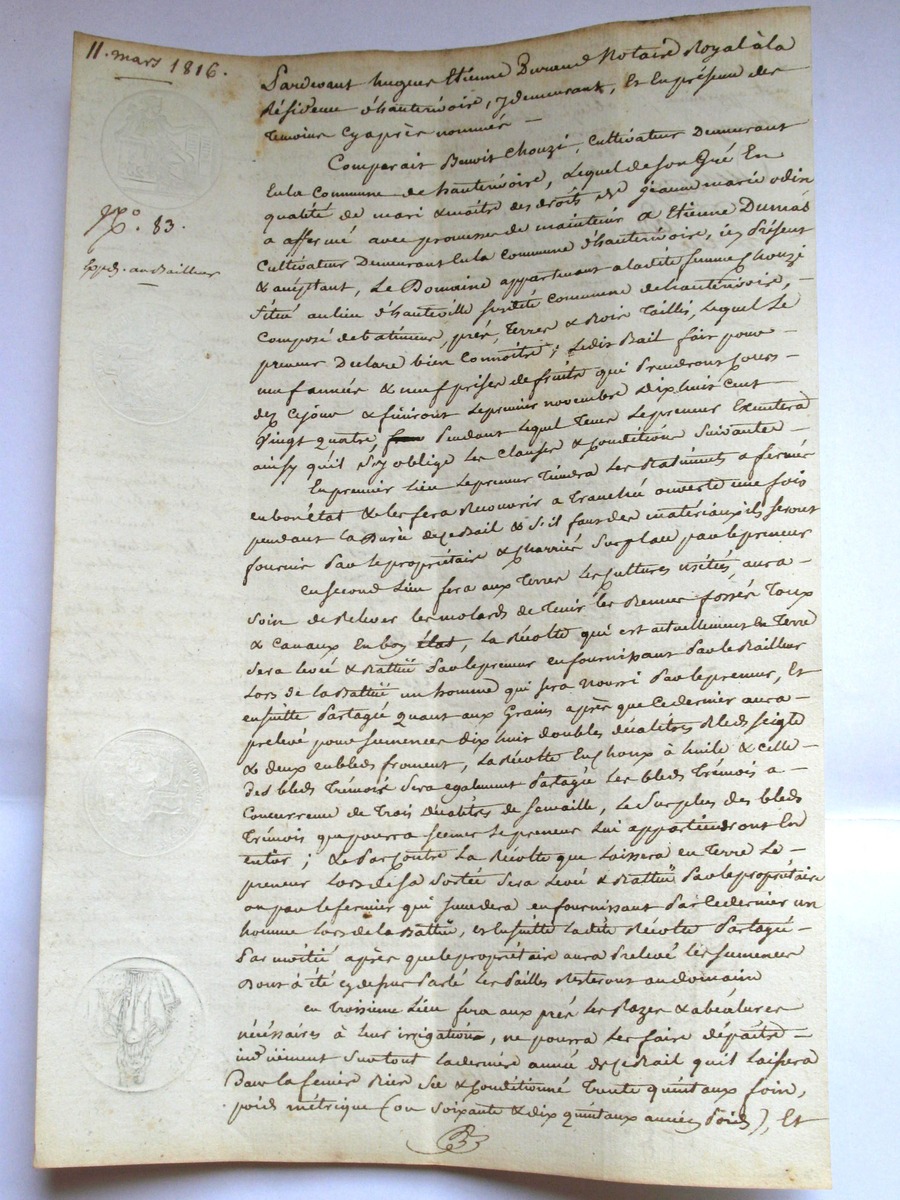 11. mars 1816.
Pardevant hugues Etienne Durand Notaire Royal à la
Résidence d'hauterivoire, y demeurant, Et En présence des
temoins cy après nommés —
N.o 83.
Expédn. au Bailleur
Comparait Benoit Chouzi, Cultivateur Demeurant
En la Commune de hauterivoire, Lequel de Son Gré En
qualité de mari & maitre des droits de jeanne marie odin
a affermé avec promesse de maintenir a Etienne Dumas
Cultivateur Demeurant En la Commune d'hauterivoire, icy Présent
& acceptant, Le Domaine appartenant a ladite femme Chouzi
Situé au lieu d'hauteville susdite commune de hauterivoire, —
Composé de batimens, prés, Terres & Bois Taillis, Lequel Le
preneur Declare bien Connoitre; Ledit Bail fait pour —
neuf années & neuf prises de fruits qui Prendront Cours —
dez Cejour & finiront Lepremier novembre Dix huit Cent
Vingt quatre, Pendant Lequel Tems Lepreneur Executera
ainsy qu'il s'y oblige Les Clauses & Conditions Suivantes —
En premier Lieu Lepreneur Tiendra Les Batiments a fermés
en bon état & les fera Recouvrir a Tranchée ouverte une fois
pendant La Durée de ce Bail & S'il faut des matériaux ils seront
fournis Par le propriétaire & Charriés Sur place par le preneur
en second Lieu fera aux Terres Les Cultures usitées, aura —
Soin de Relever les molards de Tenir les fossés Toux
& Canaux En bon état, La Récolte qui est actuellement En Terre
Sera levée & Battüe Par le preneur en fournissant Par le Bailleur
Lors de la Battüe un homme qui sera nourri Par le preneur, Et
ensuitte Partagée quant aux Grains après que Ce dernier aura —
prélevé pour semences dix huit doubles décalitres Bleds seigle
& deux en bleds froment, La Récolte En Choux à huile & celle —
des bleds Trémois Sera également Partagée Les bleds Trémois a —
Concurrence de Trois décalitres de Semaille, Le Surplus des bleds
Trémois que pourra Semer Le preneur Lui appartiendront En
entier; & Par Contre La Récolte que Laissera en Terre Le —
preneur Lors de Sa Sortée Sera Levée & Battüe Par le propriétaire
ou par le fermier qui succedera en fournissant Par Ce dernier un
homme Lors de la Battüe, et Ensuitte Ladite Récolte Partagée —
Par moitié après que le propriétaire aura Prelevé Les Semences
Dont à été cy dessus Parlé Les Pailles Resteront au domaine
en Troisieme Lieu fera aux prés Les Razes & abéalures
nécéssaires à leur irrigation, ne pourra Les faire dépaitre —
Surtout La derniere année de ce Bail qu'il Laissera
Dans La feniere Bien Sec & Conditionné Trente quintaux foin,
poids métrique (ou Soixante & dix quintaux anciens Poids), Et